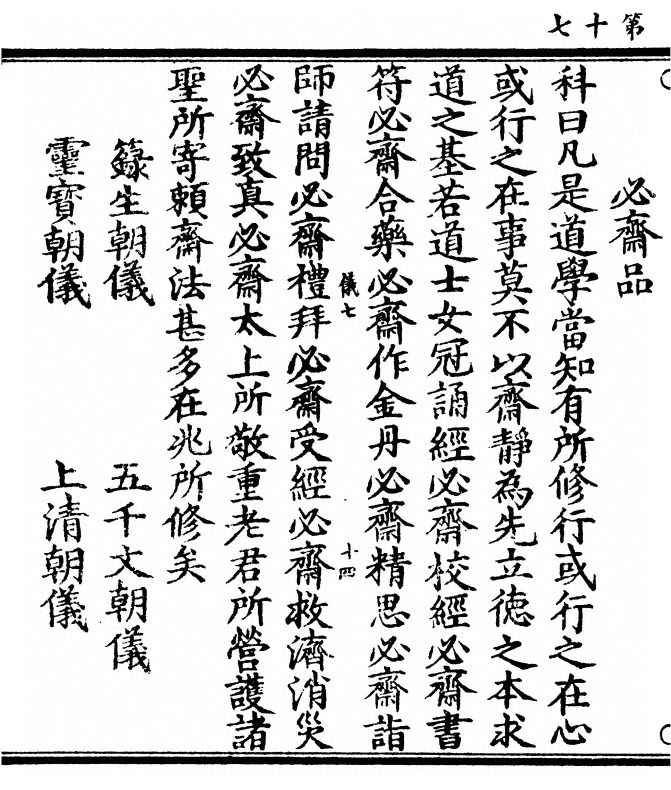 第十七
必齋品
科曰凡是道學當知有所修行或行之在心
或行之在事莫不以齋靜為先立德之本求
道之基若道士女冠誦經必齋校經必齋書
符必齋合藥必齋作金丹必齋精思必齋詣
儀七 十四
師請問必齋禮拜必齋受經必齋救濟消災
必齋致真必齋太上所敬重老君所營護諸
聖所寄頼齋法甚多在兆所修矣
籙生朝儀 五千文朝儀
靈寶朝儀 上清朝儀